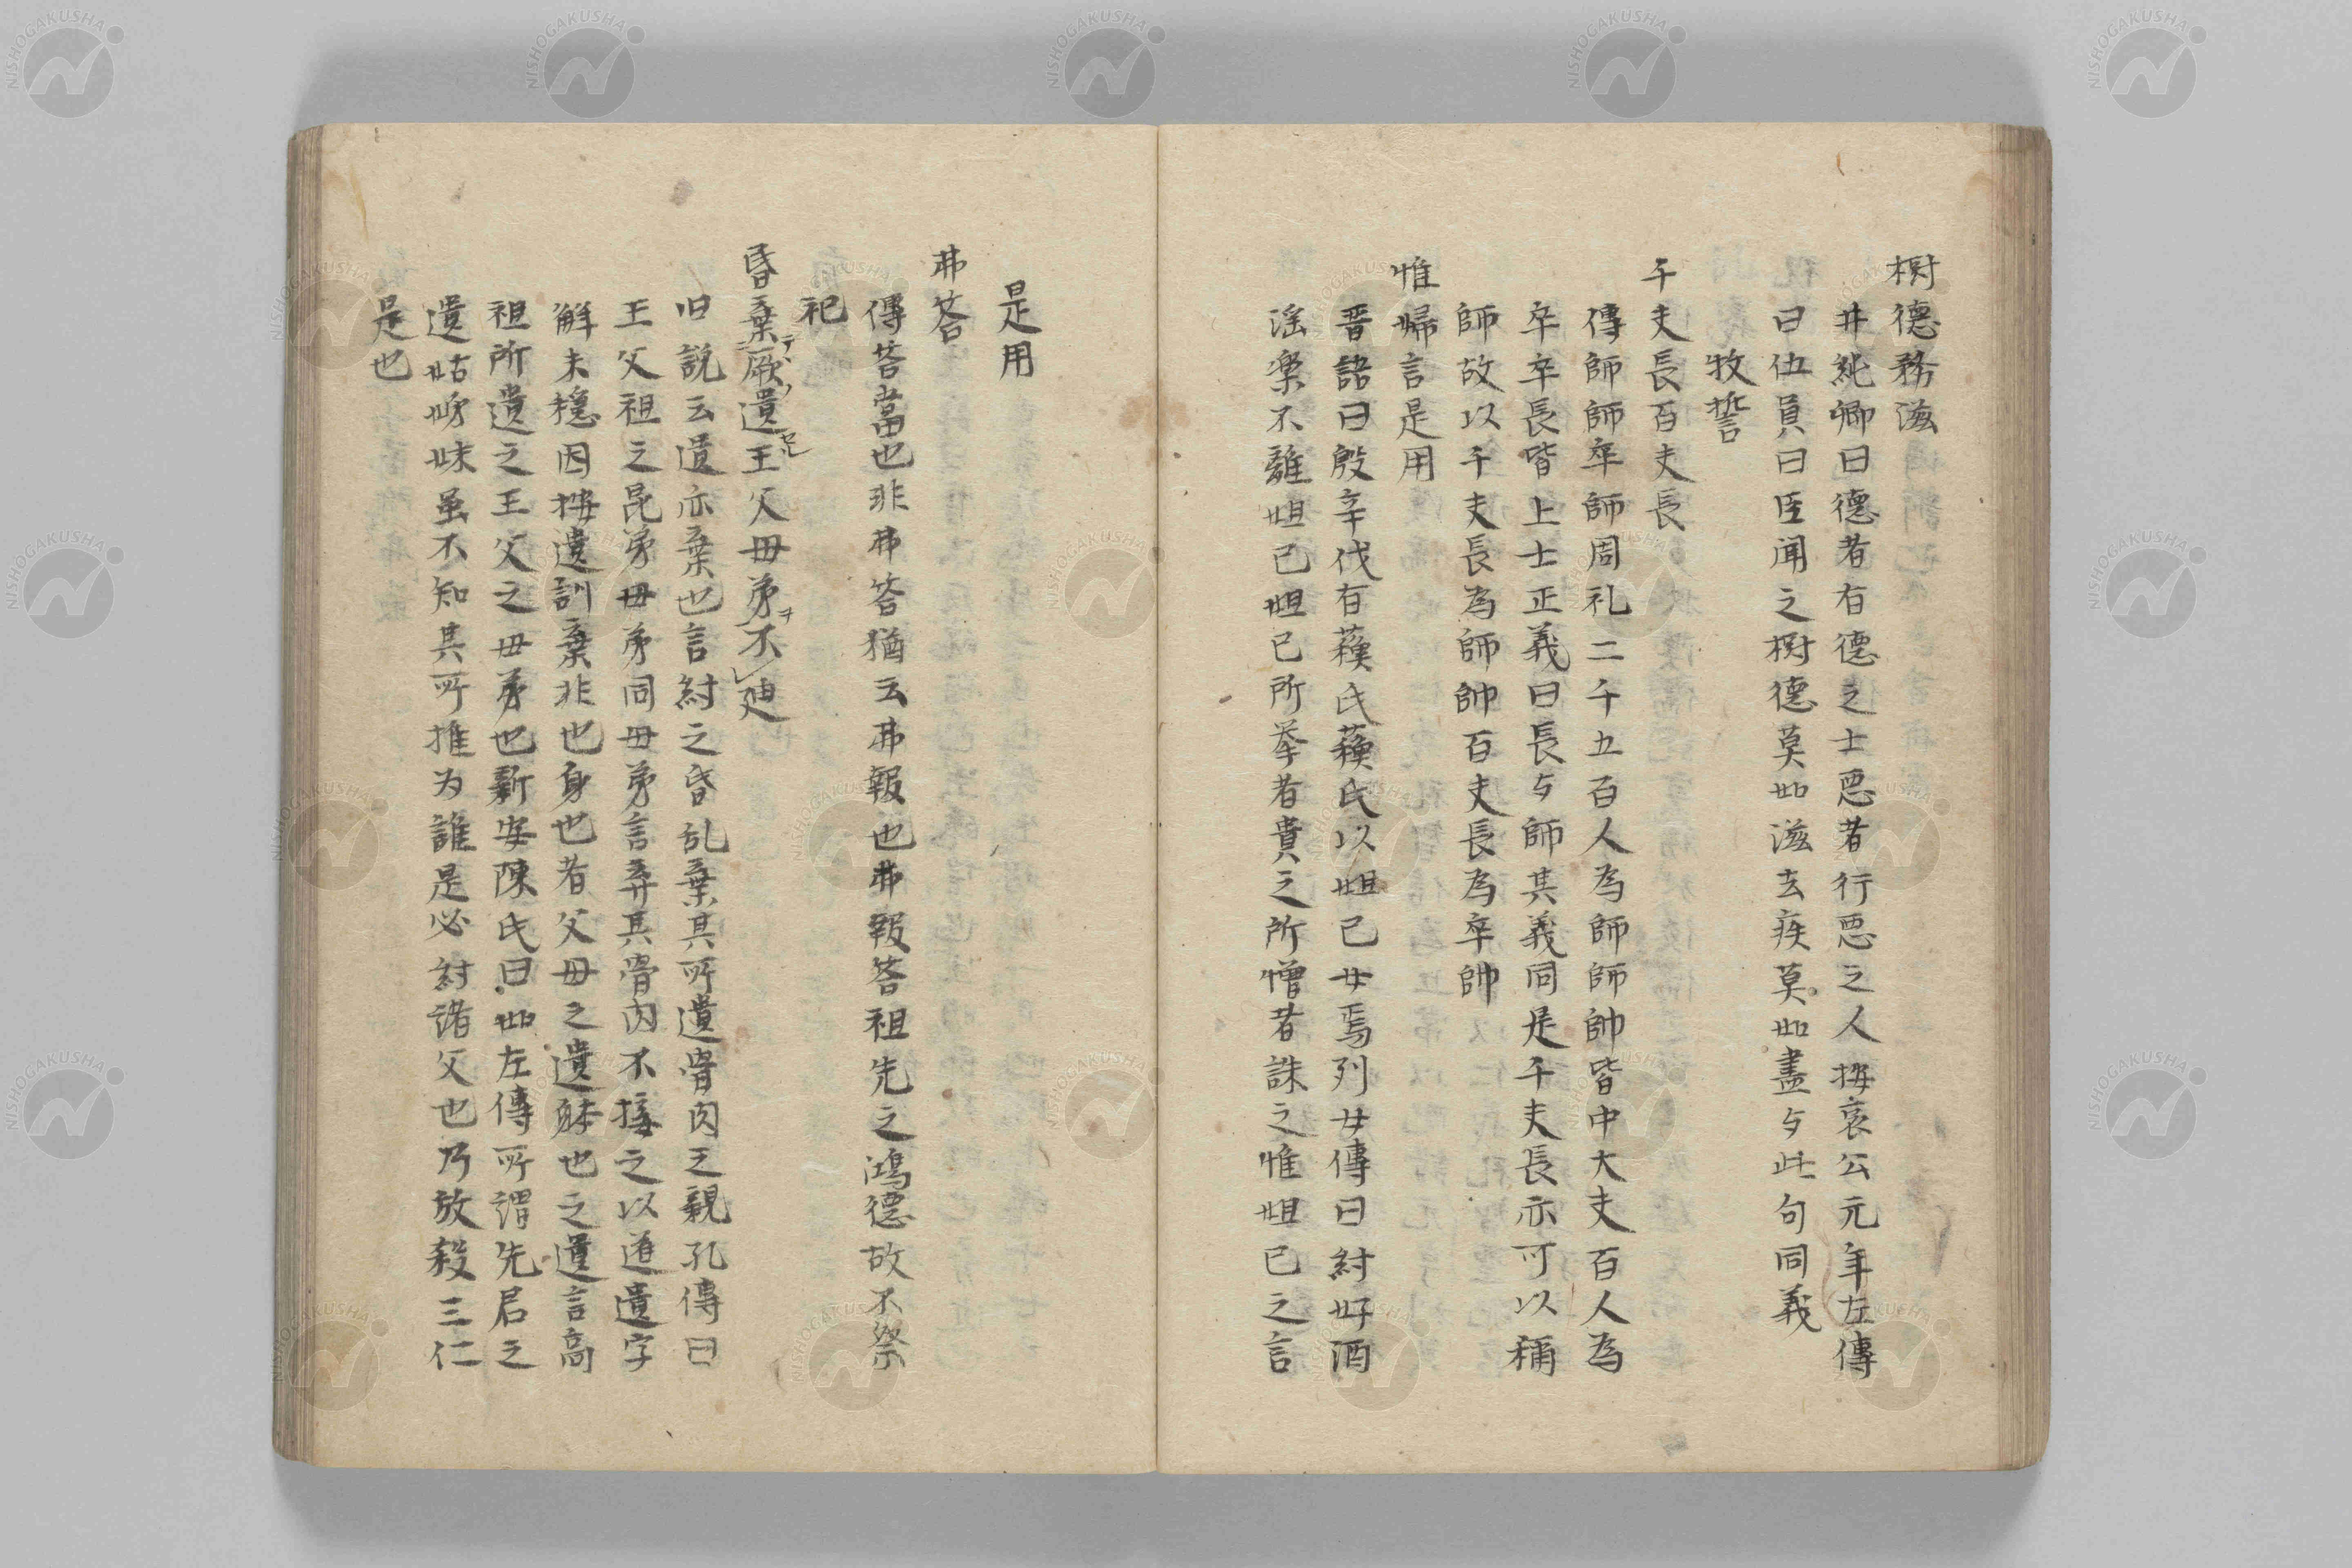 樹德務滋
井純卿曰德者有德之士悪者行悪之人按哀公元年左傳
曰伍員曰臣闻之樹德莫如滋去疾莫如盡与此句同義
牧誓
千夫長百夫長
傳師師卒師周礼二千五百人為師師帥皆中大夫百人為
卒卒長皆上士正義曰長与師其義同是千夫長亦可以稱
師故以千夫長為師帥百夫長為卒帥
惟婦言是用
晋語曰殷辛伐有蘓氏蘓氏以妲己女焉列女傳曰紂好酒
淫楽不離妲己妲己所挙者貴之所憎者誅之惟妲己之言
是用
弗荅
傳荅當也非弗荅猶云弗報也弗報荅祖先之鴻德故不祭
祀
昏棄厥遺王父毋弟不迪
旧説云遺亦棄也言紂之昏乱棄其所遺骨肉之親孔傳曰
王父祖之昆弟毋弟同毋弟言弃其骨肉不接之以道遺字
解未穏因按遺訓棄非也身也者父毋之遺躰也之遺言高
祖所遺之王父之毋弟也新安陳氏曰如左傳所謂先君之
遺姑姊妹虽不知其所推为誰是必紂諸父也乃放殺三仁
是也
NISHOGAKUSHA